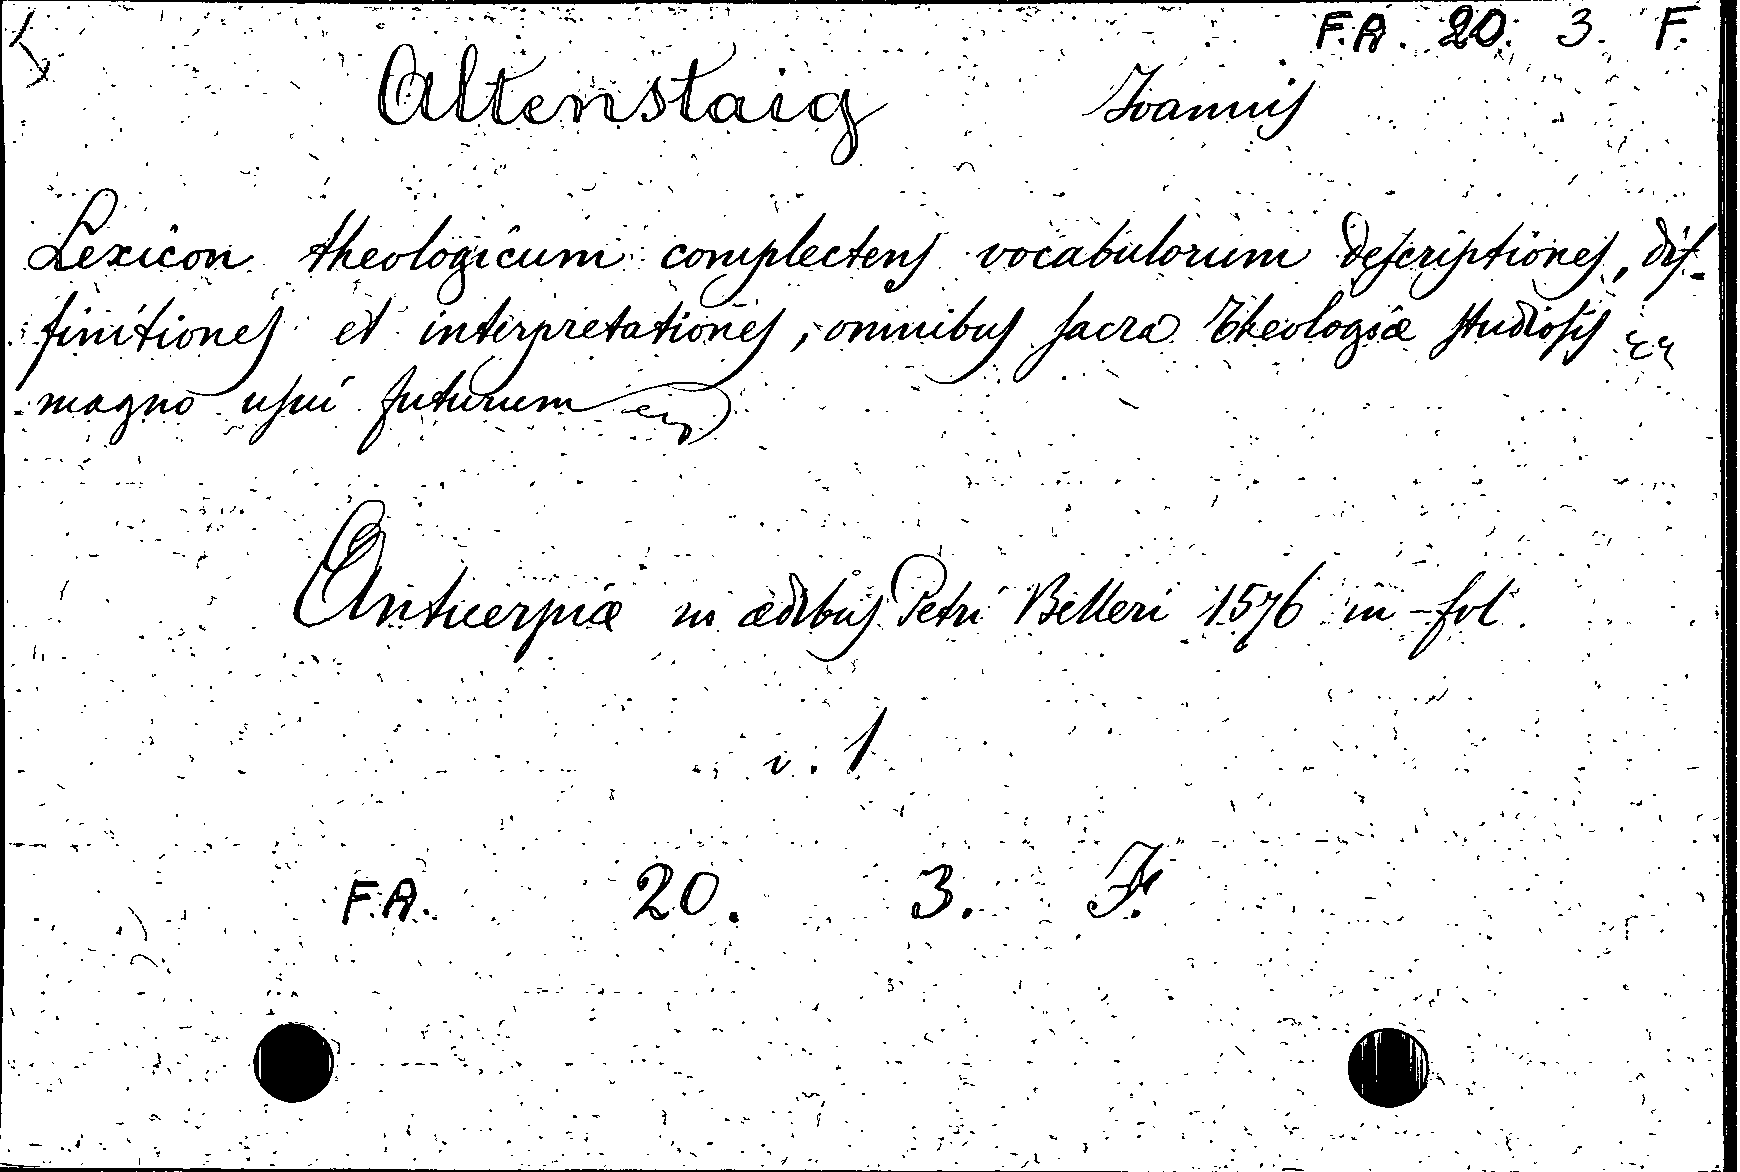 F.A. 20. 3. F.
Altenstaig Joannis
Lexicon theologicum complectens vocabulorum descriptiones, dif-
finitiones et interpretationes, omnibus sacra Theologiæ studiosis
magno usui futurum
Antverpiæ in ædibus Petri Belleri 1576 in-fol.
v. 1
F.A. 20. 3. F.